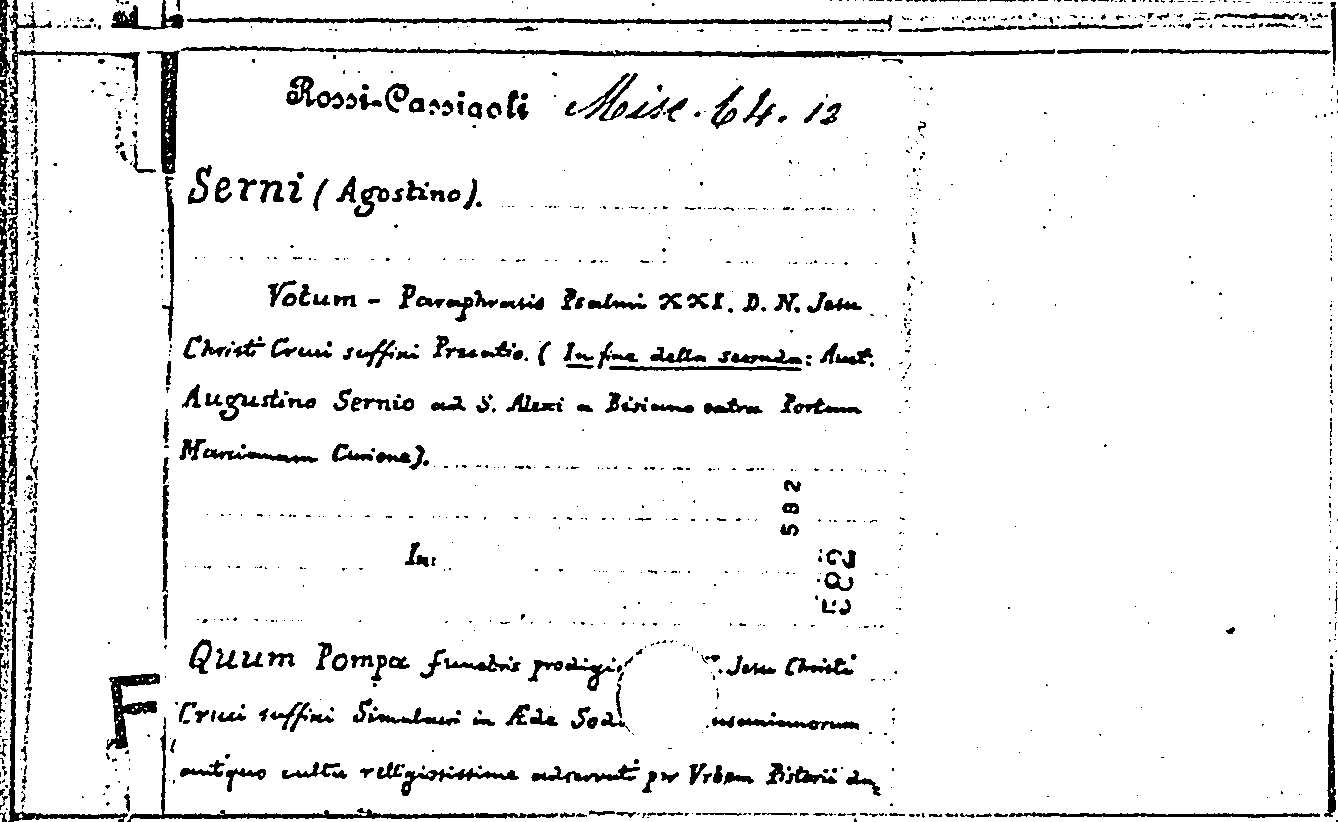 Rossi-Cassigoli Misc. 64. 12
Serni (Agostino).
Votum - Paraphrasis Psalmi XXI. D. N. Jesu
Christi Cruci suffixi Precatio. (In fine della seconda: Auct.
Augustino Sernio ad S. Alexi a Bisiano extra Portam
Marcianam Curione).
582
In:
582
Quum Pompa funebris Jesu Christi
Cruci suffixi Simulacri in Æde
antiquo cultu religiosissime adservati per Urbem Pistorii